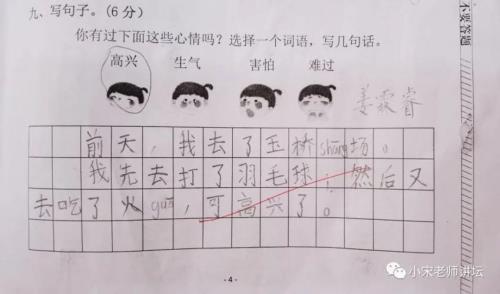 九、写句子。(6分)
你有过下面这些心情吗?选择一个词语,写几句话。
高兴 生气 害怕 难过
前天,我去了玉桥shāng场。
我先去打了羽毛球;然后又
去吃了火guō,可高兴了。
-4-
小宋老师讲坛
不要答题